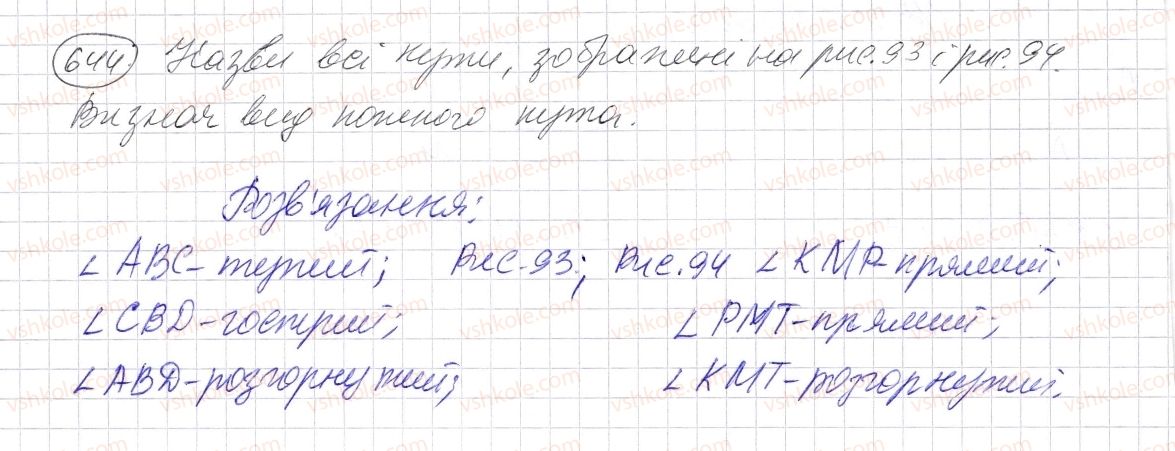 644 Назви всі кути, зображені на рис. 93 і рис. 94.
Визнач вид кожного кута.
Розв'язання:
∠ABC - тупий; Рис. 93; Рис. 94 ∠KMP - прямий;
∠CBD - гострий; ∠PMT - прямий;
∠ABD - розгорнутий; ∠KMT - розгорнутий.
vshkole.com